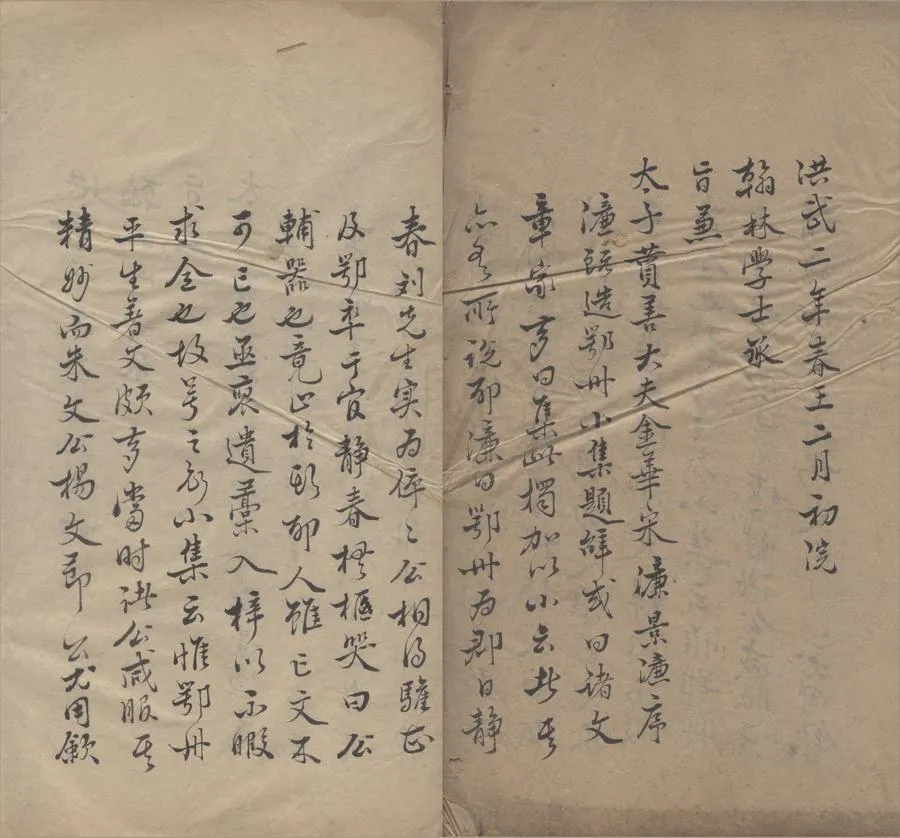 洪武二年春王二月初浣
翰林學士承
旨兼
太子賛善大夫金華宋濂景濂序
濂既造鄂州小集題辭或曰諸文
章家多曰集此獨加以小云者其
亦有所說耶濂曰鄂州为郡日静
春刘先生实为倅二公相得驩甚
及鄂卒于官静春撫柩哭曰公
輔器也竟止於斯耶人雖亡文不
可亡也亟裒遺藁入梓以不暇
求全也故号之爲小集云惟鄂州
平生著文頗多當時諸公咸服其
精妙而朱文公楊文節公尤用歛